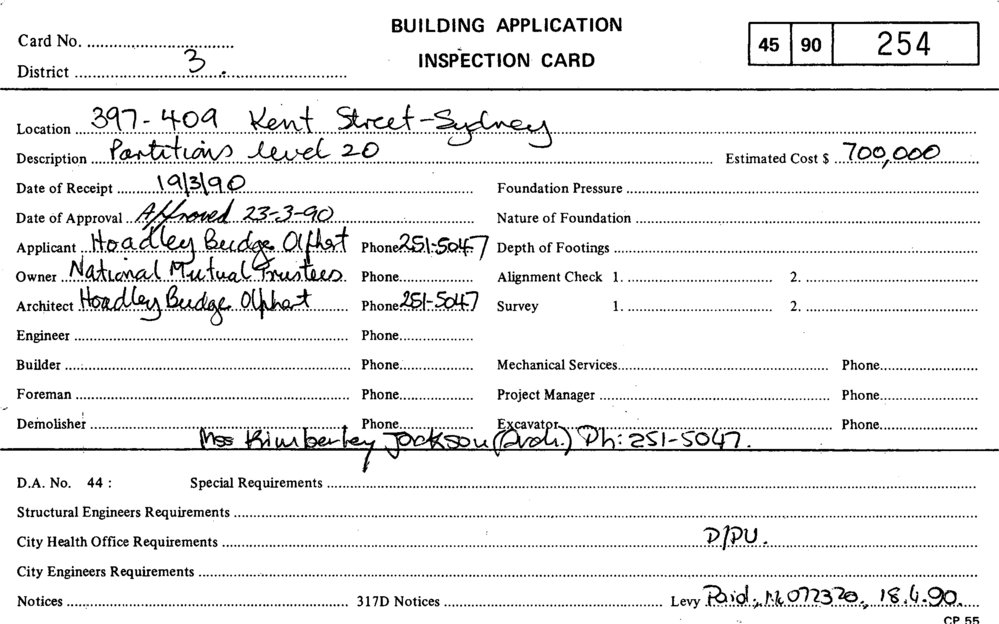 BUILDING APPLICATION
INSPECTION CARD
45 90 254
Card No.
District 3.
Location 397-409 Kent Street-Sydney
Description Partitions level 20 Estimated Cost $ 700,000
Date of Receipt 19/3/90 Foundation Pressure
Date of Approval Approved 23-3-90 Nature of Foundation
Applicant Hoadley Budge Olphert Phone 251-5047 Depth of Footings
Owner National Mutual Trustees Phone Alignment Check 1. 2.
Architect Hoadley Budge Olphert Phone 251-5047 Survey 1. 2.
Engineer Phone
Builder Phone Mechanical Services Phone
Foreman Phone Project Manager Phone
Demolisher Phone Excavator Phone
Kimberley Jackson Ph: 251-5047.
D.A. No. 44 : Special Requirements
Structural Engineers Requirements
City Health Office Requirements D/PU.
City Engineers Requirements
Notices 317D Notices Levy Paid, 072370, 18.4.90.
CP 55